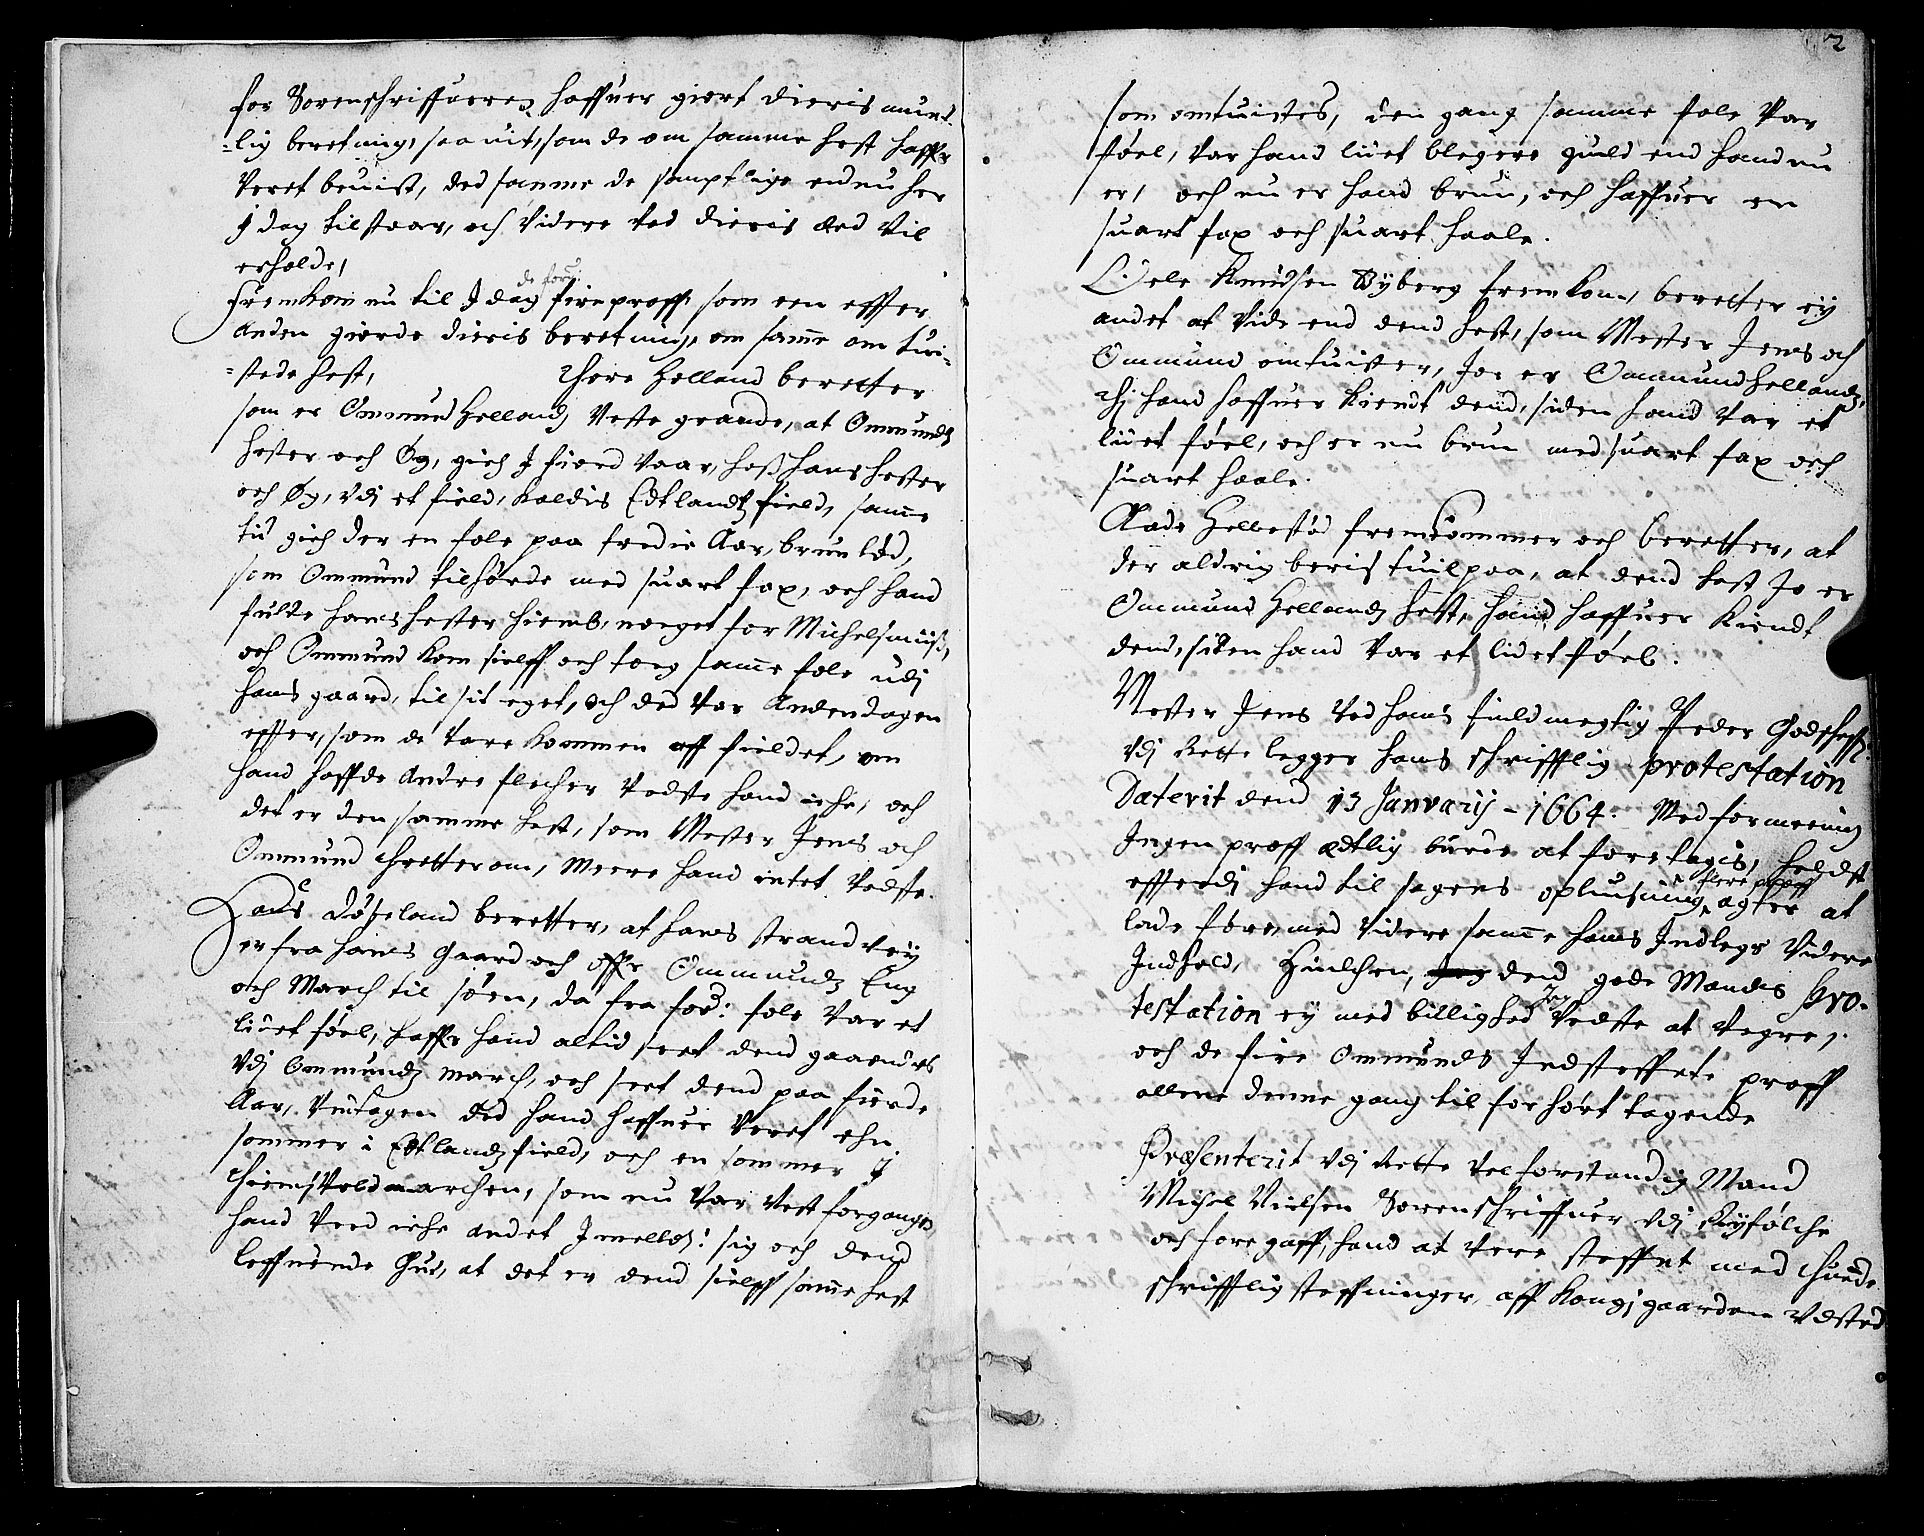 for Sorenschriffueren haffuer giort dieris mund
=lig beretning, saa uit, som de om samme hest haffr
veret beuist, ded samme de samptlige endnu her
J dag tilstaar, och videre ved dieris eed vil
erholde,
de forß:
Fremkom nu til J dag fire proff som een effter
anden giorde dieris beretning, om samme om tui-
=stede hest, Thore Helland beretter
som er Ommund Hellandz neste grande, at Ommundz
hester och Øg, gich J fiord vaar, hoß hans hester
och Øg, vdj et field, kaldis Edtlandz field, samme
tid gich der en fole paa tredie Aar, brun lød,
som Ommund tilhørde med suart fax, och hand
fulte hans hester hiemb, noget for Michelsmiss,
och Ommund kom sielff och tog samme fole udj
hans gaard, til sit eget, och ded var Andendagen
effter, som de vare kommen aff fieldet, om
hand haffde andre flecher vedste hand iche, och
det er den samme hest, som Mester Jens och
Ommund tretter om, meere hand intet vedste.
Lauß Døseland beretter, at hans strandvey
er fra hans Gaard och offr Ommundz Eng
och March til søen, da fra forß: fole var et
lidet føel, haffr hand altid seet dend gaaendes
vdj Ommundz march, och seet dend paa fierde
Aar, vndtagen ded hand haffuer veret ehn
sommer i Edtlandz field, och en sommer J
Thiemsvold marchen, som nu var nest forgangen
hand veed iche andet Jmellom: sig och dend
leffuende Gud, at det er dend sielff samme hest
2
som omtuistes, den gang samme fole var
føel, var hand lidet blegere guld end hand nu
er, och nu er hand brun, och haffuer en
suart fax och suart haale.
Oele Knudsen Byberg fremkom, beretter ey
andet at vide end dend hest, som Mester Jens och
Ommund omtuister, Jo er Ommund Hellandz,
thj hand haffuer kiendt dend, siden hand var et
lidet føel, och er nu brun med suart fax och
suart haale.
Aade Hellestød fremkommer och beretter, at
der aldrig beris tuil paa, at dend hest Jo er
Ommund Hellandz hest, hand haffuer kiendt
dend, siden hand var et lidet føel.
Mester Jens ved hans fuldmegtig Peder Godtschsz.
vdj Rette legger hans schrifftlig protestation
Daterit dend 13 Januarij - 1664. Med formeening
Jngen proff edtlig burde at foretagis, heldst
flere proff
effterdj hand til sagens oplusning agter at
lade føre, med videre samme hans Jndlegs videre
Jndhold, Huilchen, dend gode Mandis pro-
Jeg
testation ey med billighed vedste at vegre,
och de fire Ommunds Jndsteffnte proff
allene denne gang til forhørt tagende
Præsenterit vdj Rette velforstandig Mand
Michel Nielsen Sorenschriffuer vdj Ryfølche
och foregaff, hand at vere steffnt med thuende
schrifftlig steffninger, aff Kongsgaarden vdsted